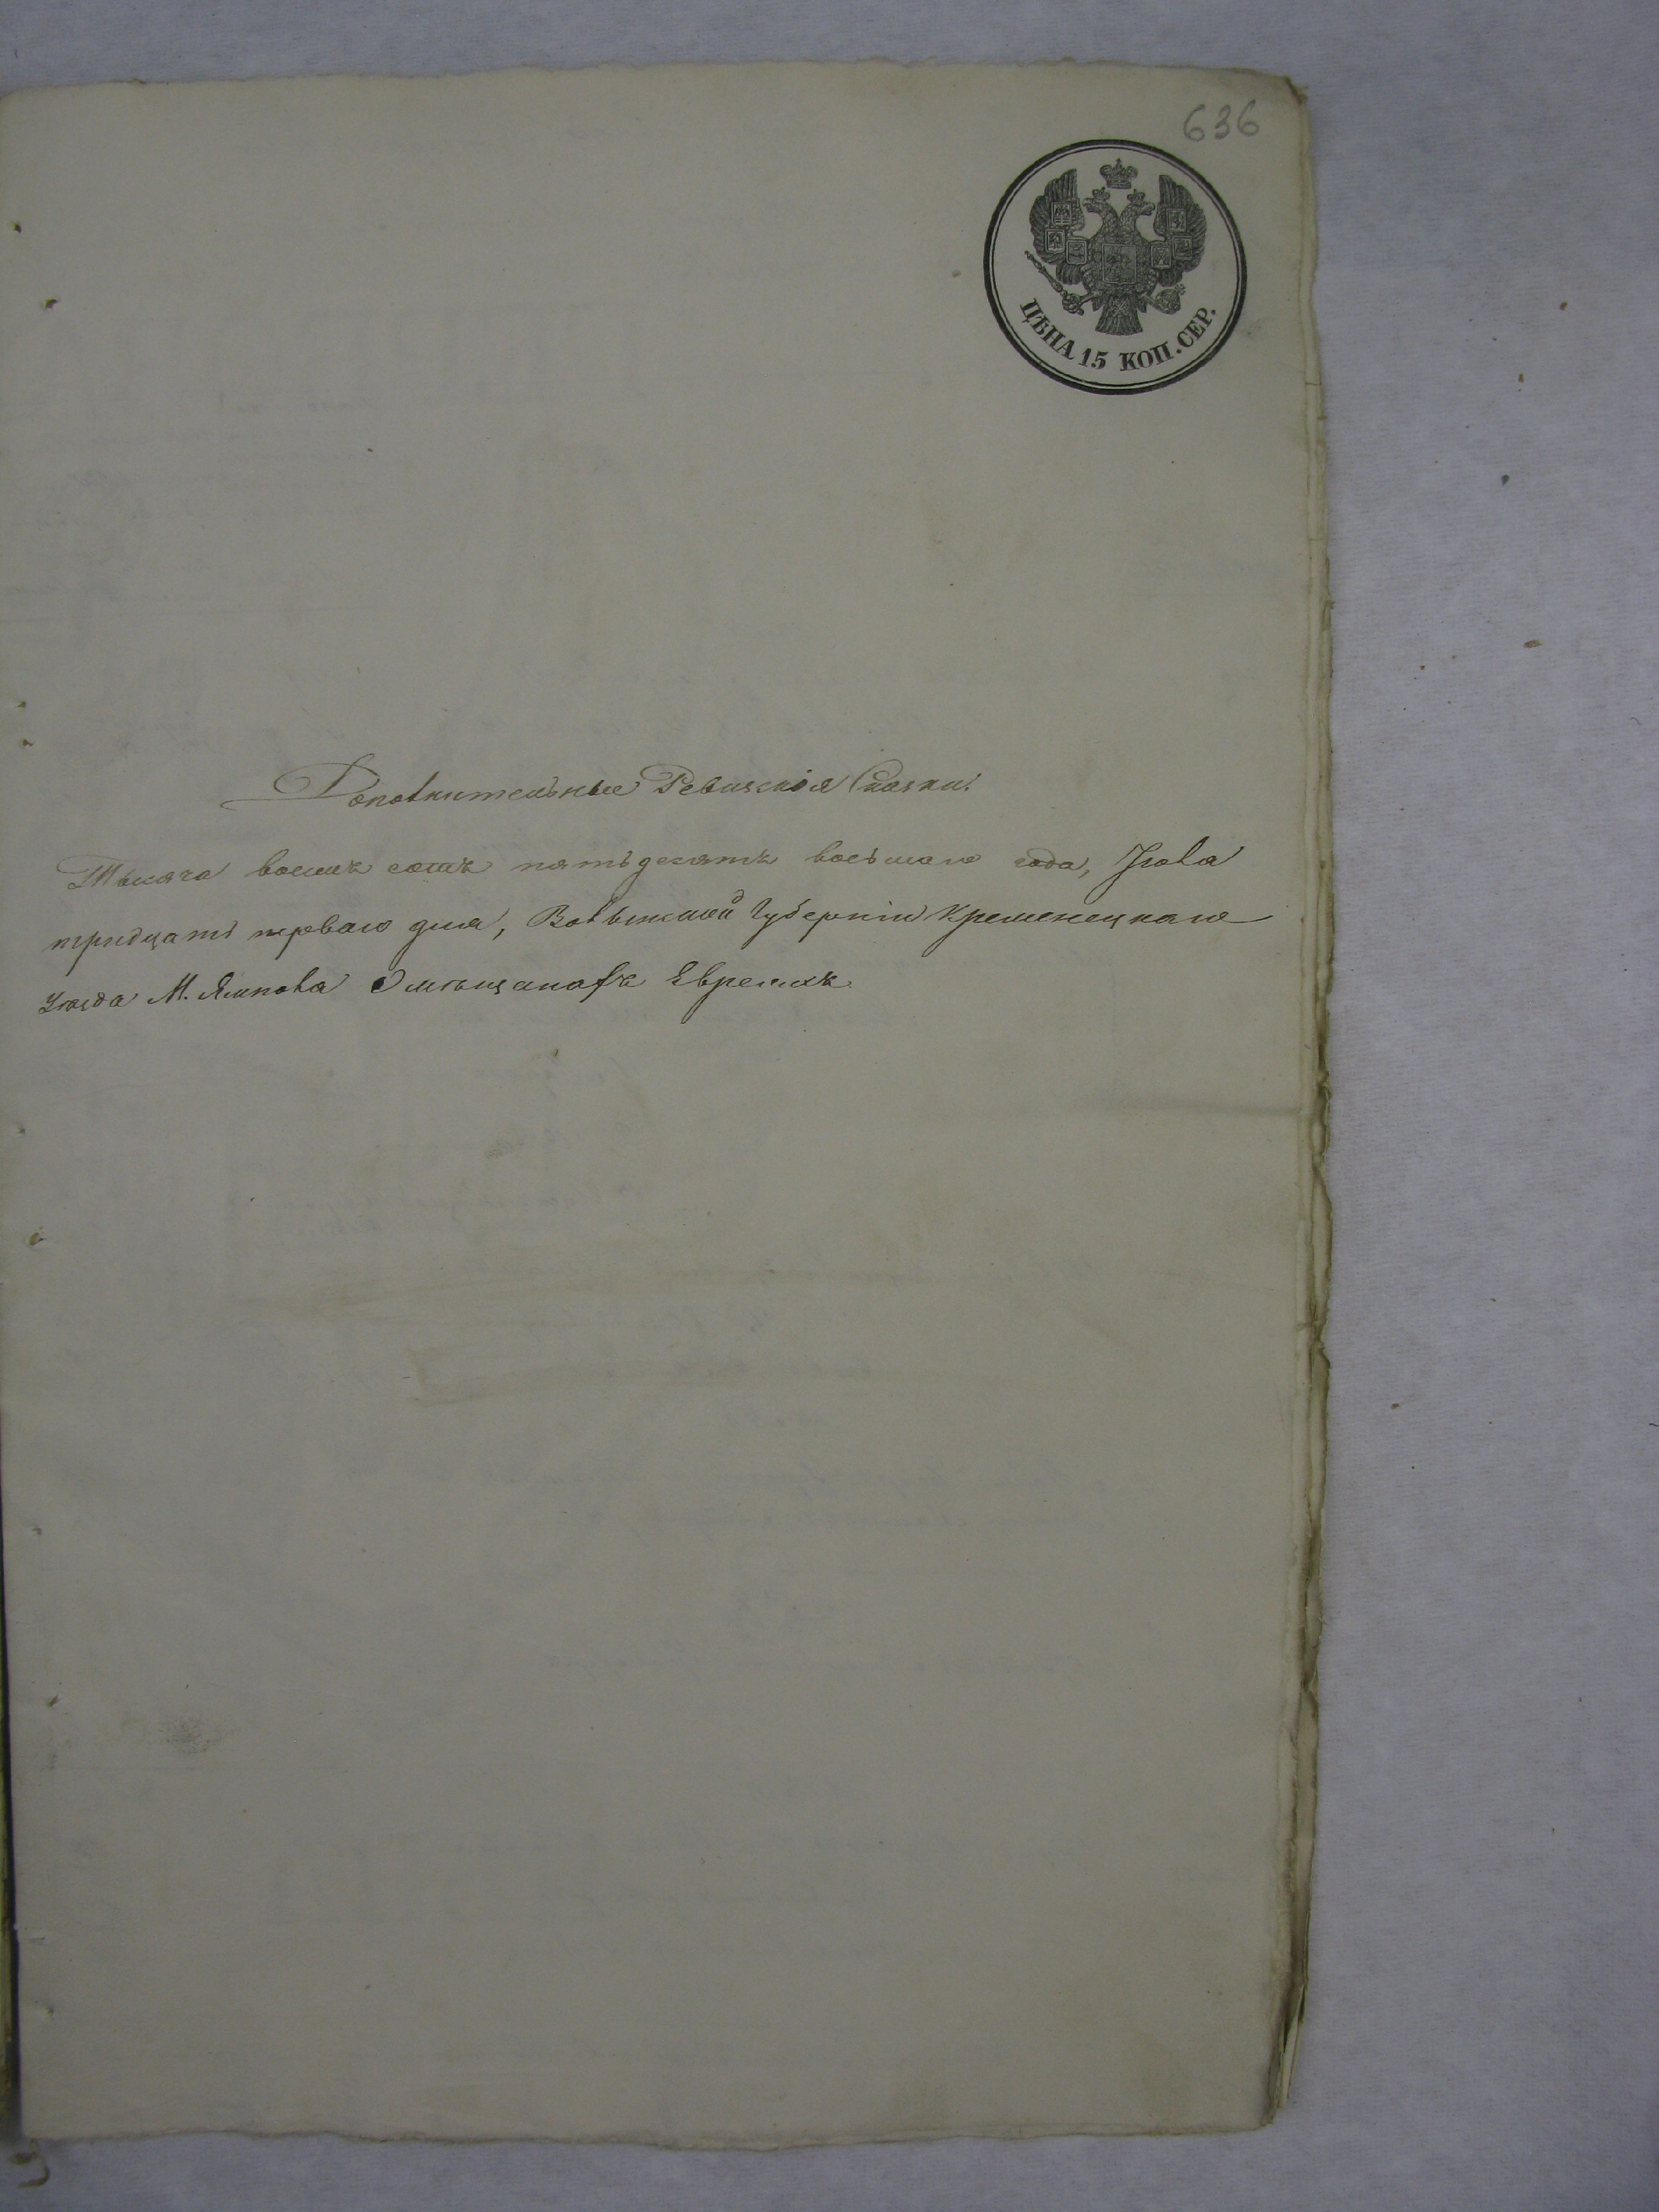 636
ЦѢНА 15 КОП. СЕР.
Дополнительные Ревизскія Сказки.
Тысяча восемъ сотъ пятьдесятъ восьмаго года, Іюля
тридцать перваго дня, Волынской Губерніи Кременецкаго
Уѣзда М. Ямпола О мѣщанахъ Евреяхъ.